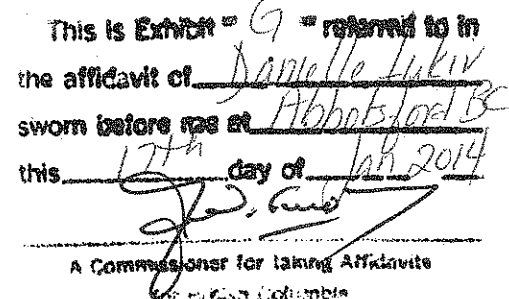 This is Exhibit "G" referred to in
the affidavit of Danielle Lukiv
sworn before me at Abbotsford BC
this 17th day of Jan 2014
A Commissioner for taking Affidavits
for British Columbia